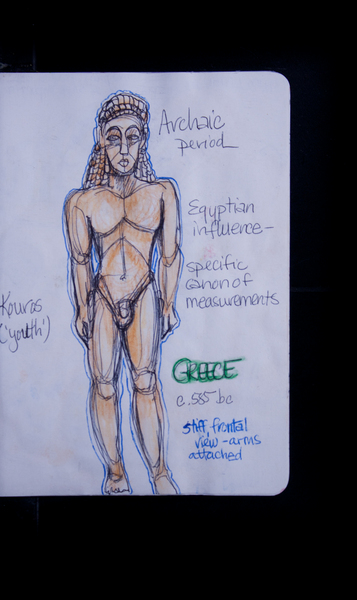 Archaic
period
Egyptian
influence-
specific
Canon of
measurements
Kouros
('youth')
GREECE
c.585 bc
stiff, frontal
view - arms
attached